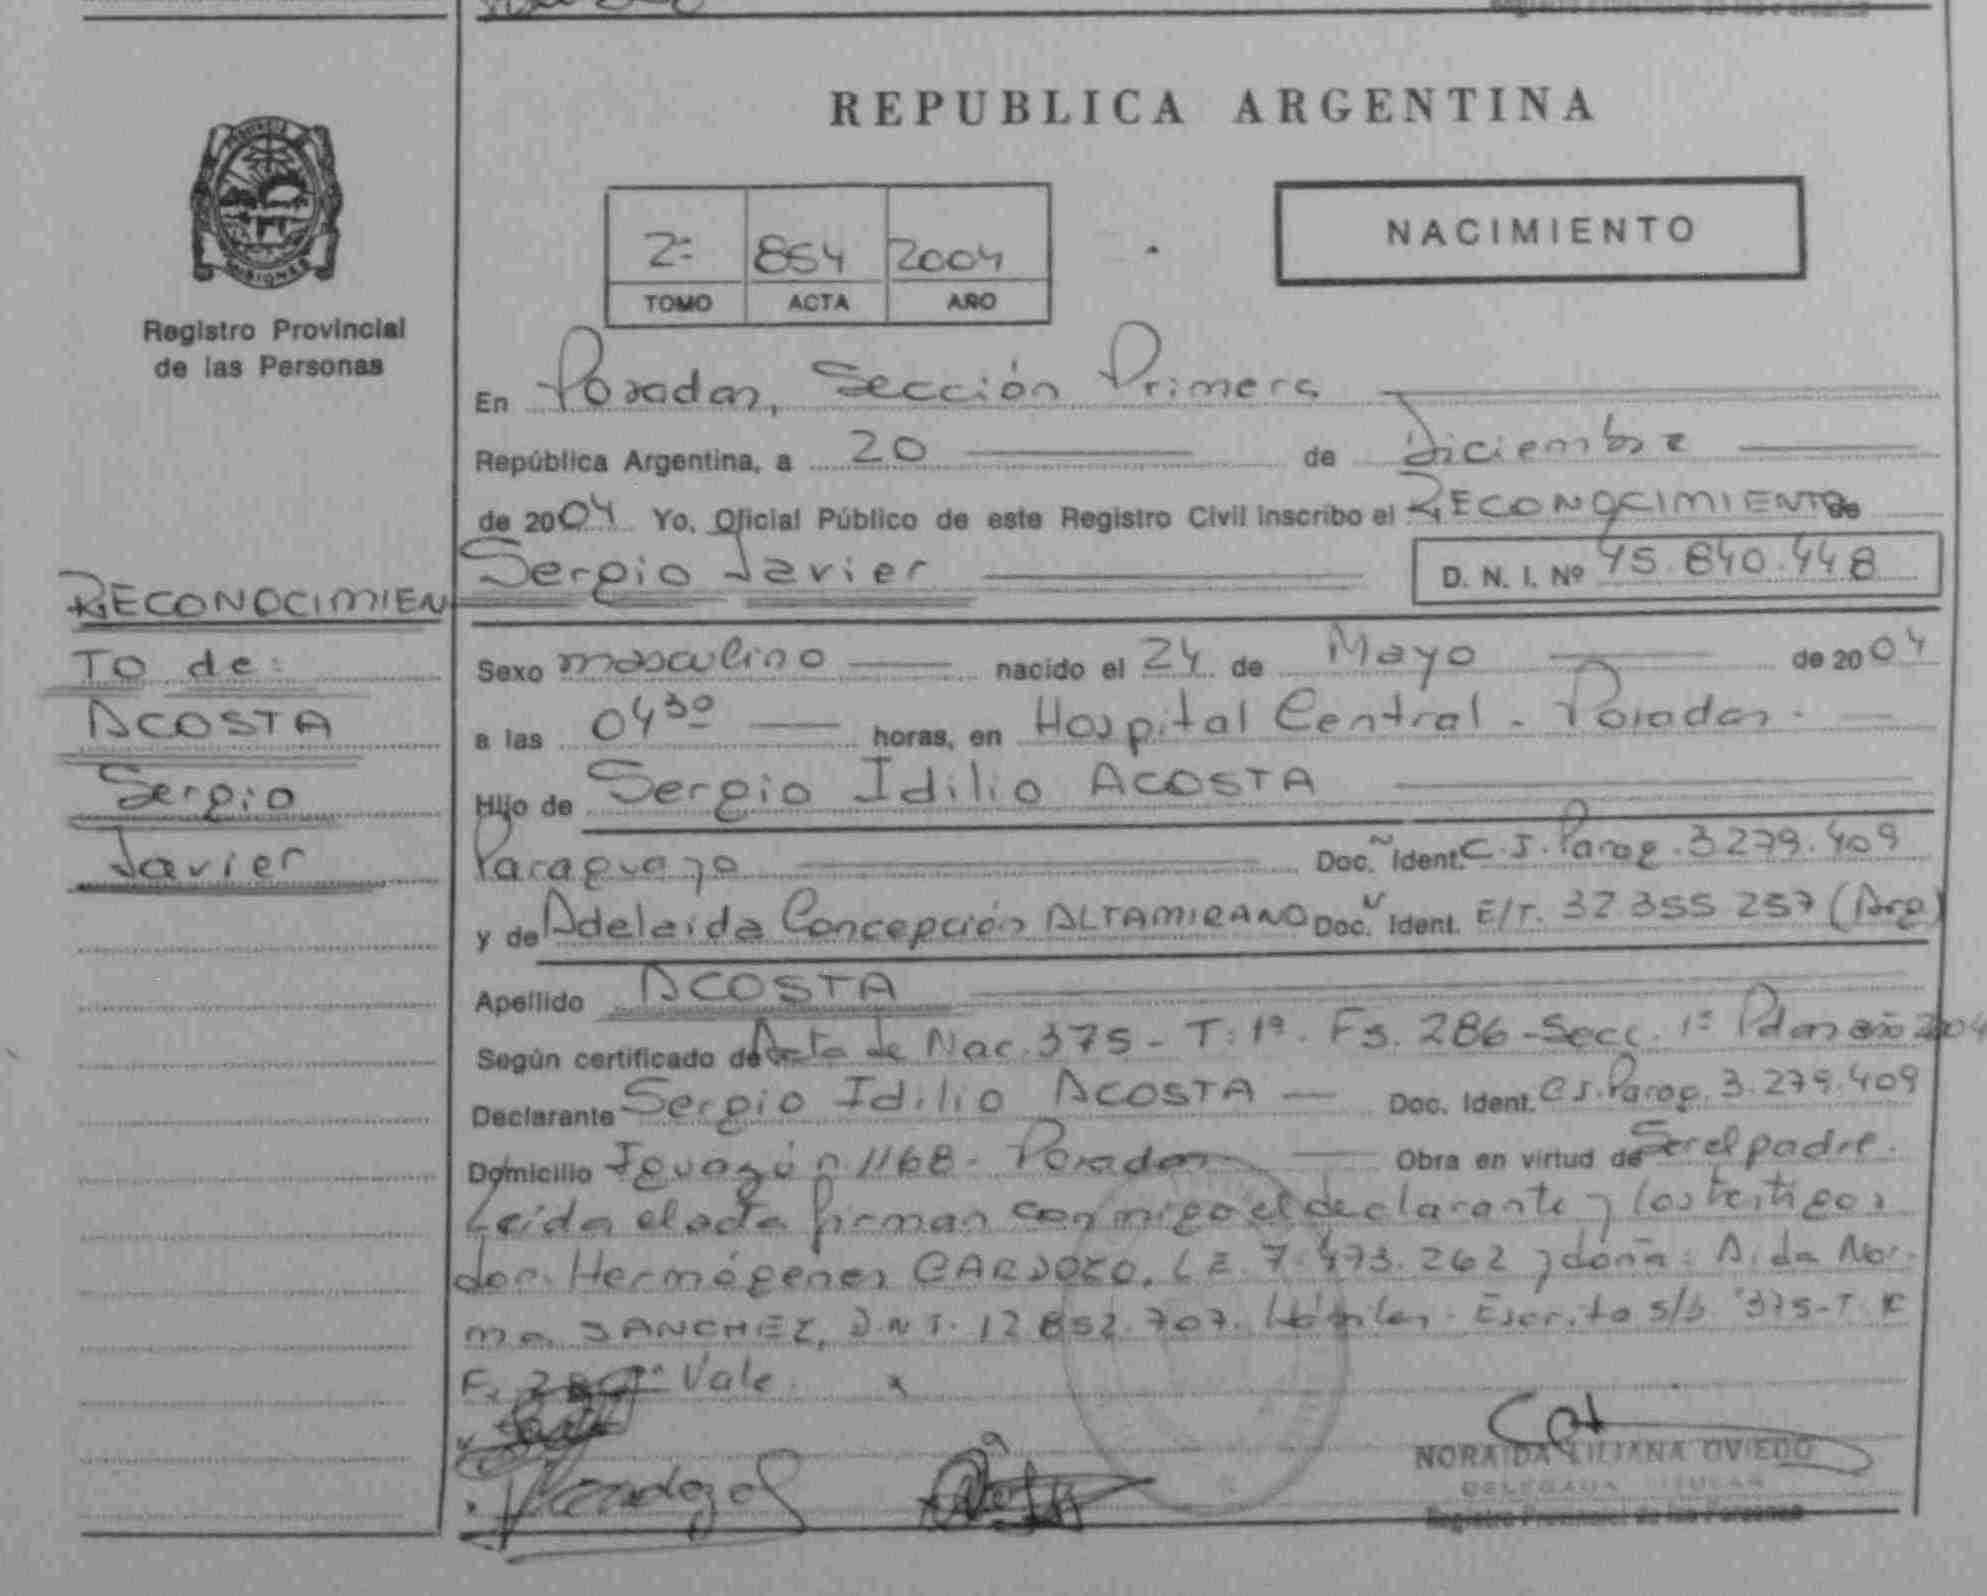 REPUBLICA ARGENTINA
NACIMIENTO
2º 854 2004
TOMO ACTA AÑO
PROVINCIA
MISIONES
Registro Provincial
de las Personas
RECONOCIMIEN
TO de:
ACOSTA
Sergio
Javier
En Posadas, Sección Primera
República Argentina, a 20 de Diciembre
de 2004 Yo, Oficial Público de este Registro Civil inscribo el RECONOCIMIENTO de
Sergio Javier D. N. I. Nº 45.840.448
Sexo masculino nacido el 24 de Mayo de 2004
a las 04³⁰ horas, en Hospital Central - Posadas.
Hijo de Sergio Idilio ACOSTA
Paraguayo Doc. Ident. C.I. Parag. 3.279.409
y de Adelaida Concepción ALTAMIRANO Doc. Ident. E/T. 32.355.257 (Arg)
Apellido ACOSTA
Según certificado de Acta de Nac. 375 - T: 1º. Fs. 286 - Secc. 1º Pdas año 2004
Declarante Sergio Idilio ACOSTA Doc. Ident. C.I. Parag. 3.279.409
Domicilio Iguazú n. 1168 - Posadas Obra en virtud de Ser el padre.
Leída el acta firman conmigo el declarante y los testigos
don: Hermógenes CARDOZO, L.E. 7.473.262 y doña: Aida Nor-
ma SANCHEZ, D.N.I. 12.852.707. Hábiles. Escrito s/b "375-T. 1º
Vale
NORAIDA LILIANA OVIEDO
DELEGADA TITULAR
Registro Provincial de las Personas